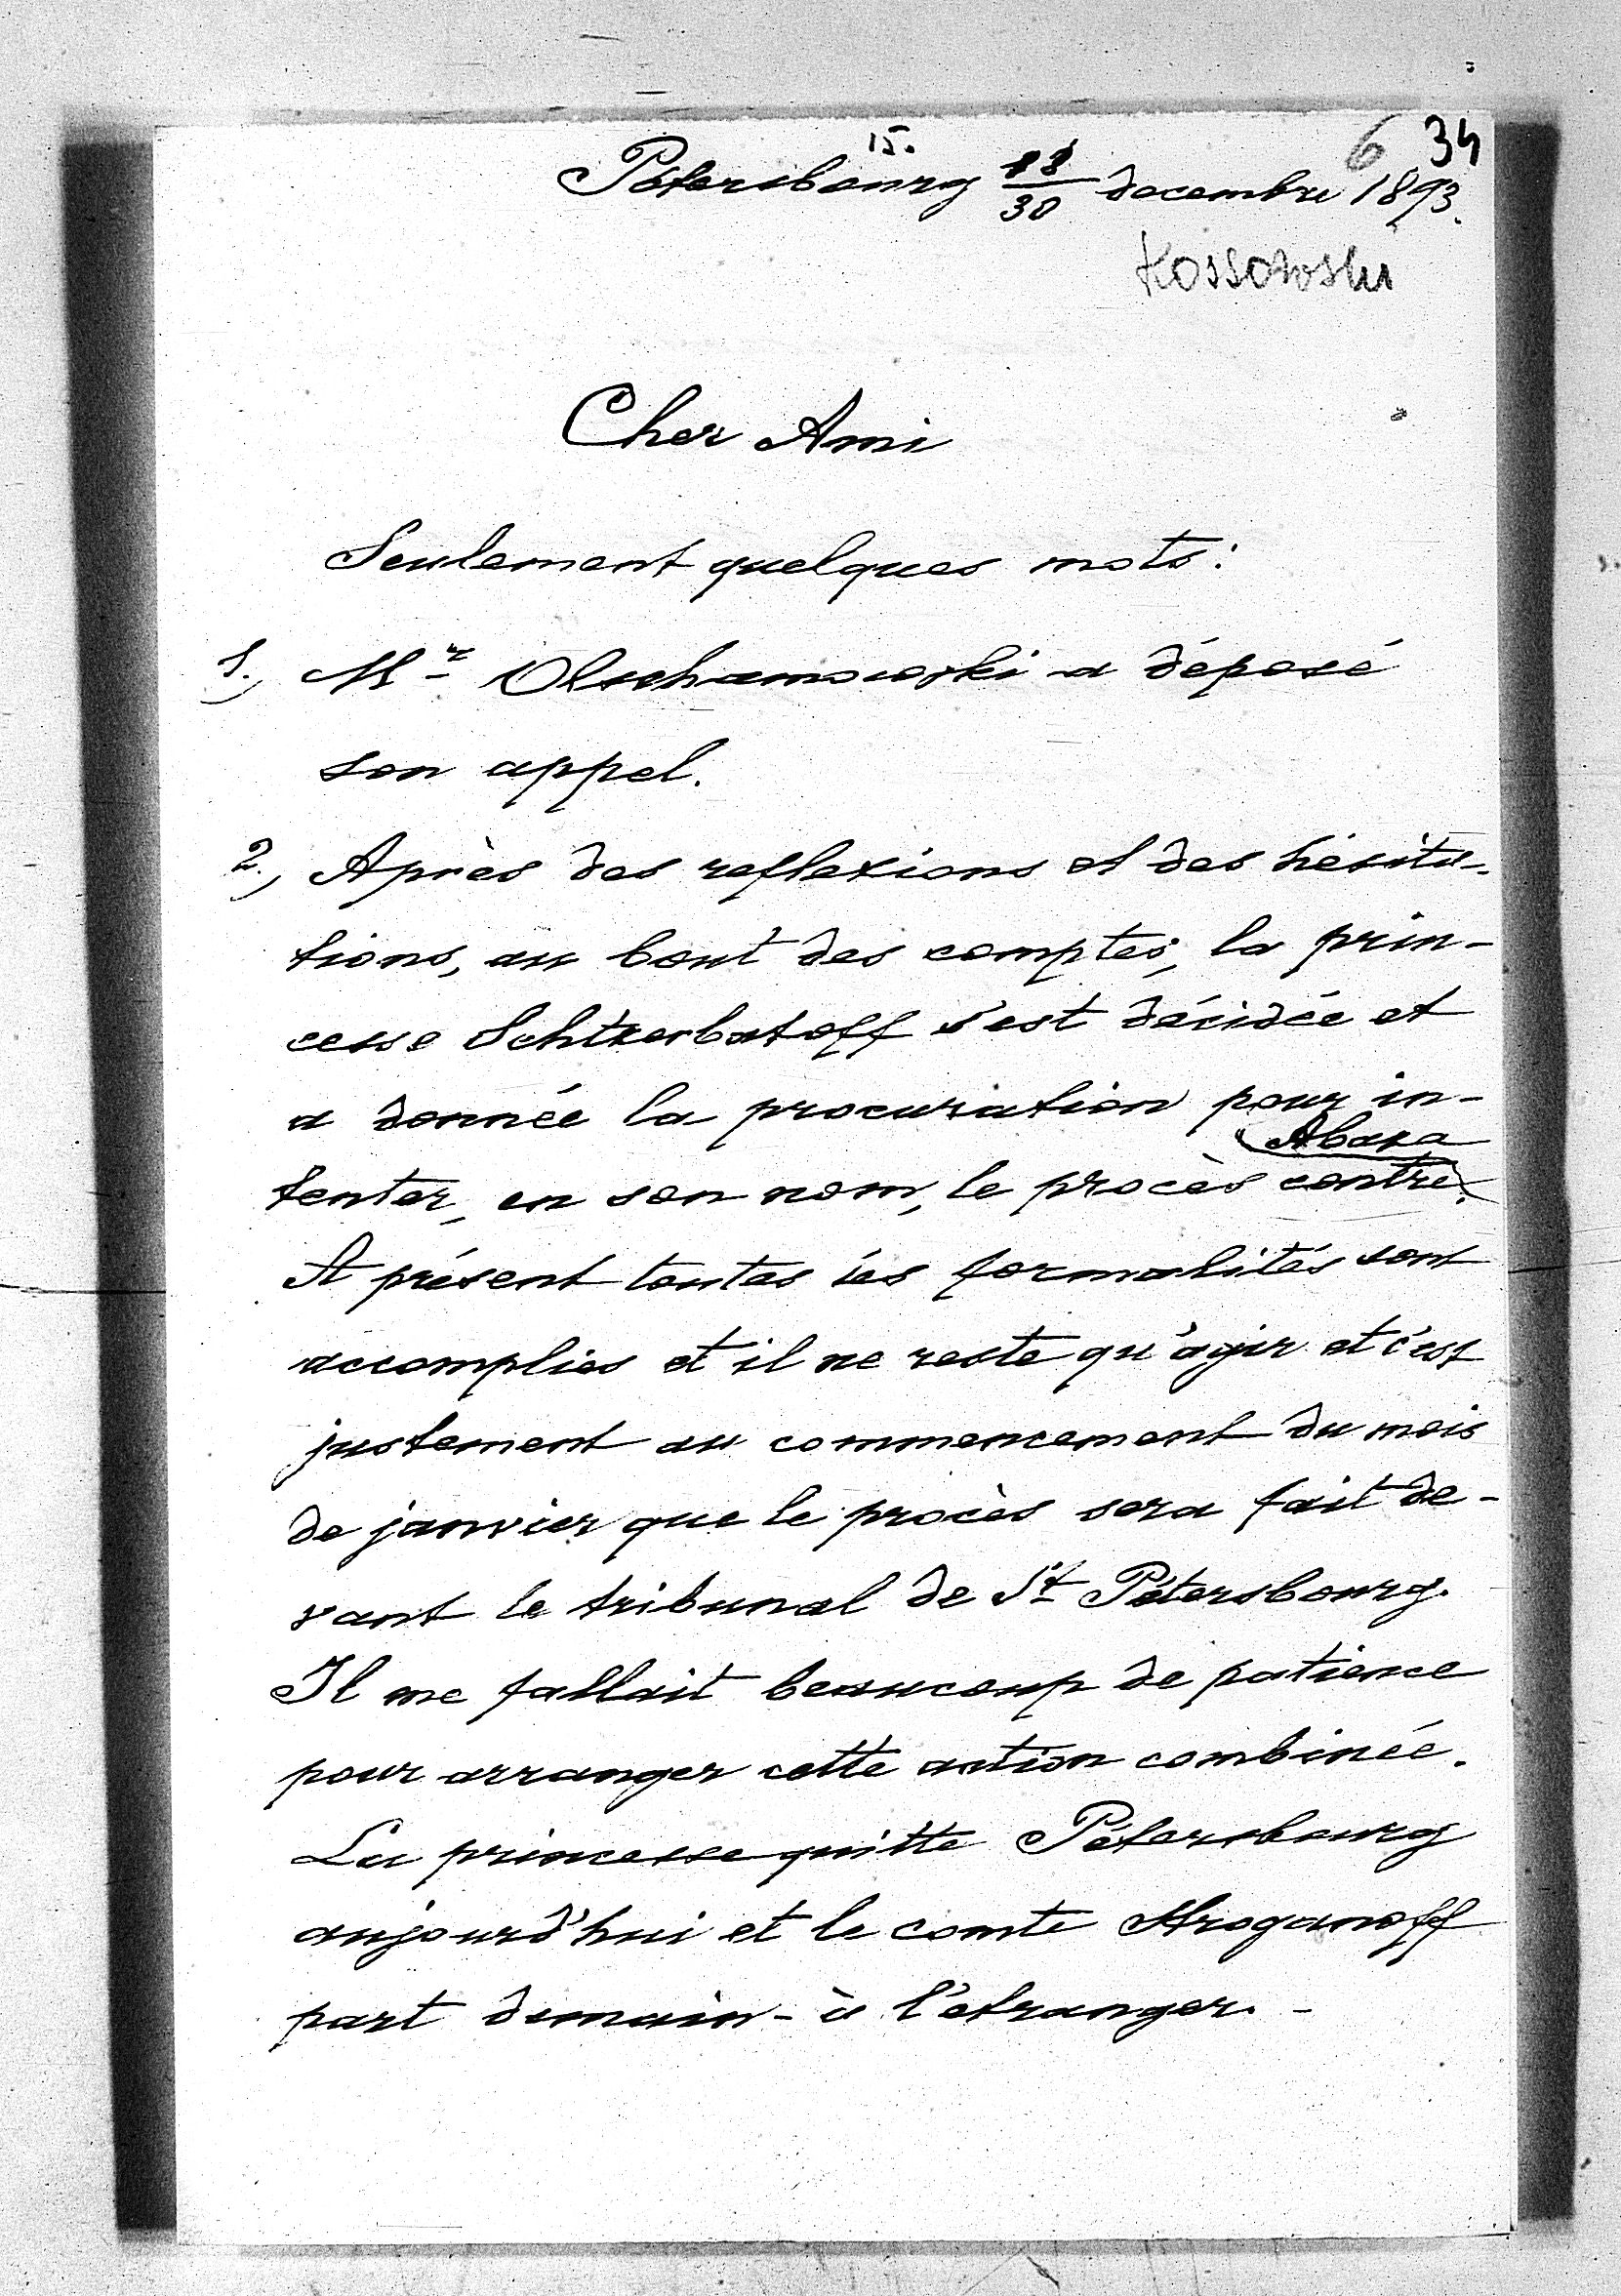 15.
6 34
Pétersbourg 18/30 decembre 1893.
Kossowski
Cher Ami
Seulement quelques mots:
1.) Mr Olschamowski a déposé
son appel.
2.) Après des reflexions et des hésita-
tions, au bout des comptes, la prin-
cesse Schtzerbatoff s'est décidée et
a donnée la procuration pour in-
tenter, en son nom, le procès contre Abaza.
A présent toutes les formalités sont
accomplies et il ne reste qu'agir et c'est
justement au commencement du mois
de janvier que le procès sera fait de-
vant le tribunal de St Pétersbourg.
Il me fallait beaucoup de patience
pour arranger cette action combinée.
La princesse quitte Pétersbourg
aujourd'hui et le comte Stroganoff
part demain - à l'etranger. -